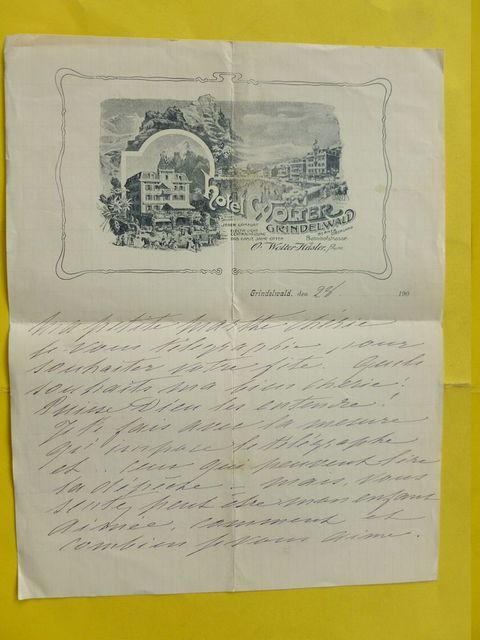 Hotel Wolter
GRINDELWALD
JEDER COMFORT
ELEKTR. LICHT
DAS GANZE JAHR OFFEN
Bahnhofstrasse
O. Wolter-Häsler,
Grindelwald, den 22/ 190
Ma petite Marthe chérie
je vous télégraphie, pour
souhaiter votre fête. Quels
souhaits ma bien chérie!
Puisse Dieu les entendre!
Je le fais avec la mesure
qui impose le télégraphe
et ceux qui peuvent lire
la dépêche - mais vous
sentez peut être mon enfant
aimée, comment et
combien je vous aime.